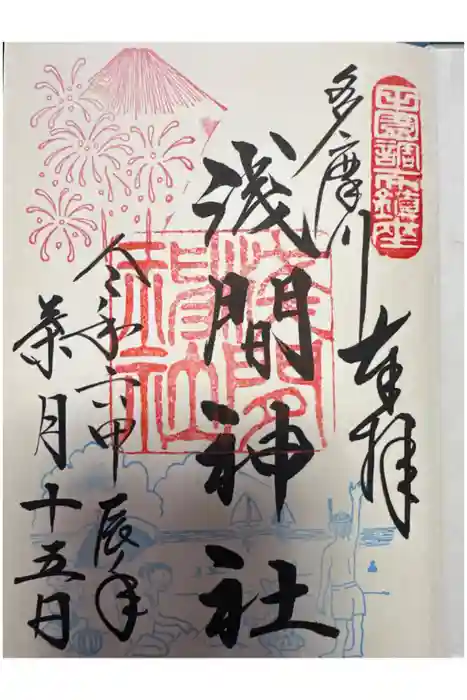 田園調布鎮座
多摩川
奉拝
浅間神社
浅間神社
令和六甲辰年
葉月十五日